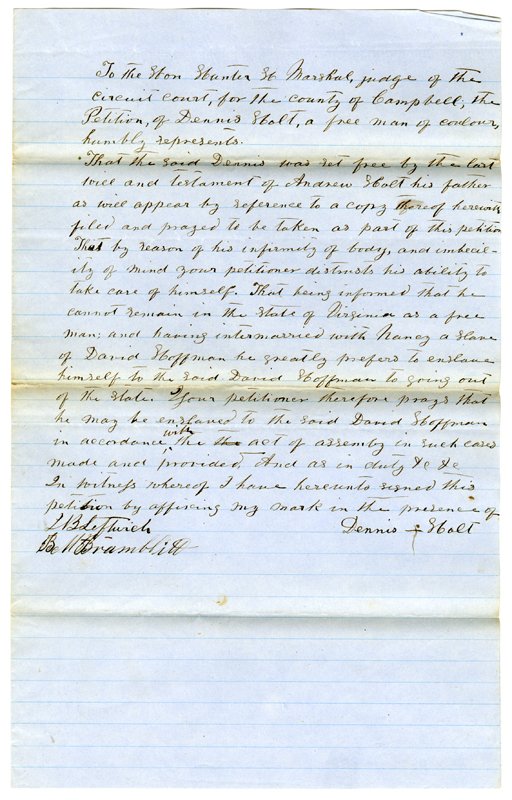 To the Hon Hunter H Marshal, judge of the
circuit court, for the county of Campbell, the
Petition, of Dennis Holt, a free man of coulour,
humbly represents.
That the said Dennis was set free by the last
will and testament of Andrew Holt his father
as will appear by reference to a copy thereof herewith
filed and prayed to be taken as part of this petition
That by reason of his infirmity of body, and imbecil-
ity of mind your petitioner distrusts his ability to
take care of himself. That being informed that he
cannot remain in the state of Virginia as a free
man; and having intermarried with Nancy a slave
of David Hoffman he greatly prefers to enslave
himself to the said David Hoffman to going out
of the state. Your petitioner therefore prays that
he may be enslaved to the said David Hoffman
in accordance with the the act of assembly in such cases
made and provided. And as in duty &c &c
In witness whereof I have hereunto signed this
petition by affixing my mark in the presence of
L B Leftwich Dennis + Holt
Bramblitt